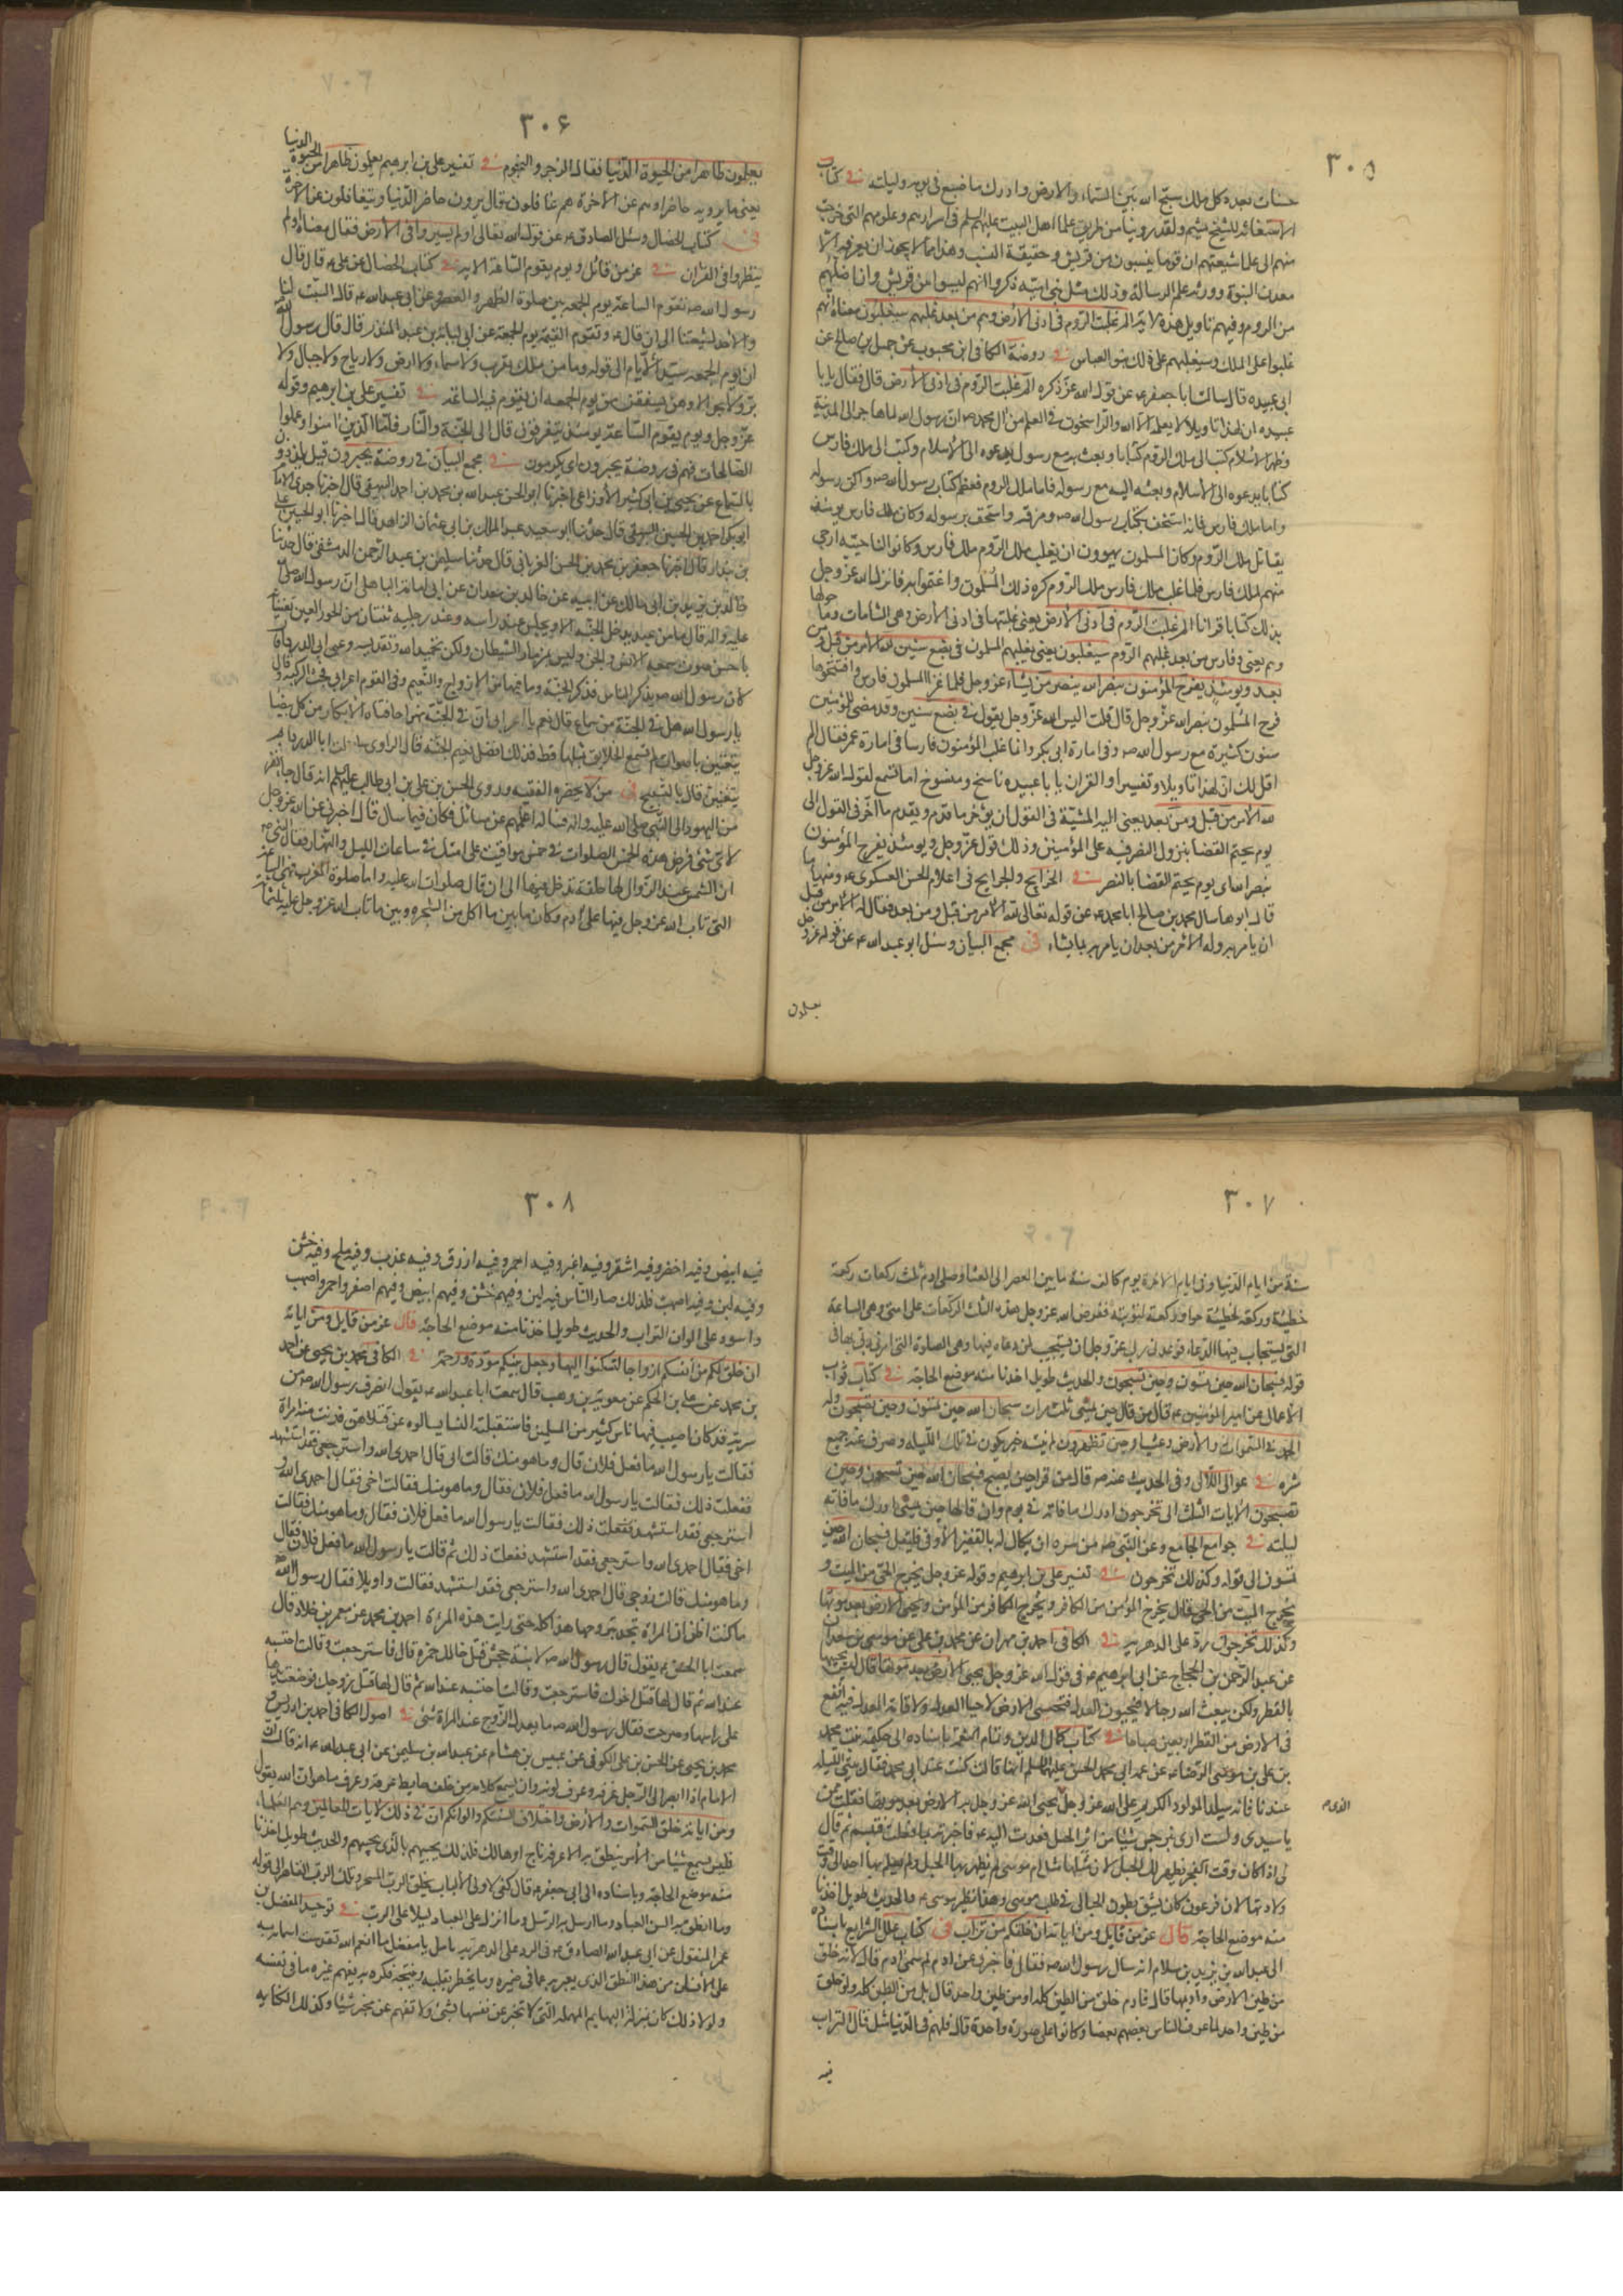 ٣٠٥
حسنات بعدد كل ملك سبح الله بين السماء والارض وادرك ما ضيع فى يومه وليلته فى كتاب
الاستغاثه للشيخ ميثم ولقد روينا من طريق علماء اهل البيت عليهم السلم فى اسرارهم وعلومهم التى خرجت
منهم الى علماء شيعتهم ان قوما ينسبون من قريش وحقيقة النسب وهذا مما لا يجوز ان يعرفه الا
معدن النبوة وورثه علم الرساله وذلك مثل بنى اميه ذكروا انهم ليسوا من قريش وان اصلهم
من الروم وفيهم تاويل هذه لاية الم غلبت الروم فى ادنى الأرض وهم من بعد غلبهم سيغلبون معناه انهم
غلبوا على الملك وسيغلبهم على ذلك بنو العباس فى روضة الكافى ابن محبوب عن جميل بن صالح عن
ابى عبيده قال سالت ابا جعفر ع عن قول الله عز ذكره الم غلبت الروم فى ادنى الأرض قال فقال يا با
عبيده ان لهذا تاويلا لا يعلمه الا الله والراسخون فى العلم من ال محمد ص ان رسول الله لما هاجر الى المدينة
وظهر الاسلام كتب الى ملك الروم كتابا وبعث به مع رسول يدعوه الى الاسلام وكتب الى ملك فارس
كتابا يدعوه الى الأسلام وبعثه اليه مع رسوله فاما ملك الروم فعظم كتاب رسول الله ص واكرم رسوله
واما ملك فارس فانه استخف بكتاب رسول الله ص ومزقه واستخف برسوله وكان ملك فارس يومئذ
يقاتل ملك الروم وكان المسلمون يهوون ان يغلب ملك الروم ملك فارس وكانوا لناحيته ارجى
منهم لملك فارس فلما غلب ملك فارس ملك الروم كره ذلك المسلمون واغتموا به فانزل الله عز وجل
بذلك كتابا قرانا الم غلبت الروم فى ادنى الأرض يعنى غلبتها فى ادنى الأرض وهى الشامات وما حولها
وهم يعنى وفارس من بعد غلبهم الروم سيغلبون يعنى يغلبهم المسلمون فى بضع سنين لله الأمر من قبل ومن
بعد ويومئذ يفرح المؤمنون بنصر الله ينصر من يشاء عز وجل فلما غزا المسلمون فارس وافتتحوها
فرح المسلمون بنصر الله عز وجل قال قلت اليس الله عز وجل يقول فى بضع سنين وقد مضى للمؤمنين
سنون كثيرة مع رسول الله ص وفى امارة ابى بكر وانما غلب المؤمنون فارسا فى امارة عمر فقال الم
اقل لك ان لهذا تاويلا وتفسيرا والقران يا با عبيده ناسخ ومنسوخ اما تسمع لقول الله عز وجل
لله الأمر من قبل ومن بعد يعنى اليه المشيّة فى القول ان يؤخر ما قدم ويقدم ما اخر فى القول الى
يوم يحتم القضا بنزول النصر فيه على المؤمنين وذلك قول عز وجل ويومئذ يفرح المؤمنون
بنصر الله اى يوم يحتم القضا بالنصر فى الخرايج والجرايح فى اعلام الحسن العسكرى ع ومنها ما
قال ابو هاشم سال محمد بن صالح ابا محمد ع عن قوله تعالى لله الأمر من قبل ومن بعد فقال له الأمر من قبل
ان يامر به وله الأمر من بعد ان يامر به بما يشاء فى مجمع البيان وسئل ابو عبد الله ع عن قوله عز وجل
يعلمون
٣٠۶
يعلمون ظاهرا من الحيوة الدنيا فقال الزجر والنجوم فى تفسير على بن ابرهيم يعلمون ظاهرا من الحيوة الدنيا
يعنى ما يرونه حاضرا وهم عن الأخرة هم غافلون قال يرون حاضر الدنيا ويتغافلون عن الأخرة
فى كتاب الخصال وسئل الصادق ع عن قول الله تعالى اولم يسيروا فى الأرض فقال معناه اولم
ينظروا فى القران فى عز من قائل ويوم يقوم الساعة الايه فى كتاب الخصال عن على ع قال قال
رسول الله ص تقوم الساعة يوم الجمعه بين صلوة الظهر والعصر وعن ابى عبد الله ع قال السبت لنا
والأحد لشيعتنا الى ان قال ع وتقوم القيمة يوم الجمعة عن ابى لبابة بن عبد المنذر قال قال رسول الله
ان يوم الجمعه سيد الأيام الى قوله وما من ملك مقرب ولا سماء ولا ارض ولا رياح ولا جبال ولا
بر ولا بحر الا وهن يشفقن من يوم الجمعه ان يقوم فيه الساعة فى تفسير على بن ابرهيم وقوله
عز وجل ويوم يقوم الساعة يومئذ يتفرقون قال الى الجنة والنار فاما الذين امنوا وعملوا
الصالحات فهم فى روضة يحبرون اى يكرمون فى مجمع البيان فى روضة يحبرون قيل يلذذون
بالسماع عن يحيى بن ابى كثير الأوزاعى اخبرنا ابو الحسن عبيد الله بن محمد بن احمد البيهقى قال اخبرنا جدى الامام
ابى بكر احمد بن الحسين البيهقى قال حدثنا ابو سعيد عبد الملك بن ابى عثمان الزاهد قال اخبرنا ابو الحسن على
بن بندار قال اخبرنا جعفر بن محمد بن الحسن الفريابى قال حدثنا سليمن بن عبد الرحمن الدمشقى قال حدثنا
خالد بن يزيد بن ابى مالك عن ابيه عن خالد بن معدان عن ابى امامة الباهلى ان رسول الله صلى
عليه واله قال ما من عبد يدخل الجنة الا ويجلس عند راسه وعند رجليه ثنتان من الحور العين تغنيانه
باحسن صوت سمعه الانس والجن وليس بمزمار الشيطان ولكن بتحميد الله وتقديسه وعن ابى الدرداء قال
كان رسول الله ص يذكر الناس فذكر الجنة وما فيها من الازواج والنعيم وفى القوم اعرابى فجثا لركبتيه وقال
يا رسول الله هل فى الجنة من سماع قال نعم يا اعرابى ان فى الجنة نهرا حافتاه الابكار من كل بيضا
يتغنين باصوات لم تسمع الخلايق بمثلها قط فذلك افضل نعيم الجنة قال الراوى سالت ابا الدرداء بم
يتغنين قال بالتسبيح فى من لا يحضره الفقيه وروى الحسن بن على بن ابى طالب عليهم السلم انه قال جاء نفر
من اليهود الى النبى صلى الله عليه واله فساله اعلمهم عن مسائل فكان فيما سال قال اخبرنى عن الله عز وجل
لاى شئ فرض هذه الخمس الصلوات فى خمس مواقيت على امتك فى ساعات الليل والنهار فقال النبى ص
ان الشمس عند الزوال لها حلقة تدخل فيها الى ان قال صلوات الله عليه واما صلوة المغرب فهى الساعة
التى تاب الله عز وجل فيها على ادم وكان ما بين ما اكل من الشجره وبين ما تاب الله عز وجل عليه ثلثمائة
٣٠٧
سنة من ايام الدنيا وفى ايام الاخرة يوم كالف سنة ما بين العصر الى العشا وصلى ادم ثلث ركعات ركعة
خطيئته وركعة لخطيئة حوا وركعة لتوبته ففرض الله عز وجل هذه الثلث الركعات على امتى وهى الساعة
التى يستجاب فيها الدعاء فوعدنى ربى عز وجل ان يستجيب لمن دعاه فيها وهى الصلوة التى امرنى ربى بها فى
قوله فسبحان الله حين تمسون وحين تصبحون والحديث طويل اخذنا منه موضع الحاجة فى كتاب ثواب
الأعمال عن امير المؤمنين ع قال من قال حين يمسى ثلث مرات سبحان الله حين تمسون وحين تصبحون وله
الحمد فى السموات والأرض وعشيا وحين تظهرون لم يفته خير يكون فى تلك الليله وصرف عنه جميع
شره فى عوالى اللآلى وفى الحديث عنه ص قال من قرا حين يصبح فسبحان الله حين تمسون وحين
تصبحون الأيات الثلث الى تخرجون ادرك ما فاته فى يومه وان قالها حين يمسى ادرك ما فاته
ليلته فى جوامع الجامع وعن النبى ص من سره ان يكال له بالقفيز الأوفى فليقل فسبحان الله حين
تمسون الى قوله وكذلك تخرجون فى تفسير على بن ابرهيم وقوله عز وجل يخرج الحى من الميت و
يخرج الميت من الحى قال يخرج المؤمن من الكافر ويخرج الكافر من المؤمن ويحيى الأرض بعد موتها
وكذلك تخرجون ردّ على الدهريه فى الكافى احمد بن مهران عن محمد بن على عن موسى بن سعدان
عن عبد الرحمن بن الحجاج عن ابى ابرهيم ع فى قول الله عز وجل يحيى الأرض بعد موتها قال ليس يحييها
بالقطر ولكن يبعث الله رجالا فيحيون العدل فتحيى الارض لاحيا العدل ولاقامة العدل فيه انفع
فى الارض من القطر اربعين صباحا فى كتاب كمال الدين وتمام النعمة باسناده الى حكيمة بنت محمد
بن على بن موسى الرضا ع عمة ابى محمد الحسن عليهما السلم انها قالت كنت عند ابى محمد فقال بيتى الليله
عندنا فانه سيلد المولود الكريم على الله عز وجل يحيى الله عز وجل به الارض بعد موتها فقلت ممن
الذى
يا سيدى ولست ارى بنرجس شيئا من اثر الحبل فعدت اليه ع فاخبرته بما فعلت فتبسم ثم قال
لى اذا كان وقت الفجر يظهر لك الحبل لان مثلها مثل ام موسى لم يظهر بها الحبل ولم يعلم بها احد الى وقت
ولادتها لان فرعون كان يشق بطون الحبالى فى طلب موسى وهذا نظير موسى ع والحديث طويل اخذنا
منه موضع الحاجة قال عز من قايل ومن اياته ان خلقكم من تراب فى كتاب علل الشرايع باسناده
الى عبد الله بن يزيد بن سلام انه سال رسول الله ص فقال فاخبرنى عن ادم لم سمى ادم قال لانه خلق
من طين الارض واديمها قال فادم خلق من الطين كله او من طين واحد قال بل من الطين كله ولو خلق
من طين واحد لما عرف الناس بعضهم بعضا وكانوا على صورة واحدة قال فلهم فى الدنيا مثل قال التراب
فيه
٣٠٨
فيه ابيض وفيه اخضر وفيه اشقر وفيه اغبر وفيه احمر وفيه ازرق وفيه عذب وفيه ملح وفيه خشن
وفيه لين وفيه اصهب فلذلك صار الناس فيهم لين وفيهم خشن وفيهم ابيض وفيهم اصفر واحمر واصهب
واسود على الوان التراب والحديث طويل اخذنا منه موضع الحاجة قال عز من قايل ومن اياته
ان خلق لكم من أنفسكم ازواجا لتسكنوا اليها وجعل بينكم مودة ورحمة فى الكافى محمد بن يحيى عن احمد
بن محمد عن على بن الحكم عن معوية بن وهب قال سمعت ابا عبد الله ع يقول انصرف رسول الله ص من
سرية قد كان اصيب فيها ناس كثير من المسلمين فاستقبلته النساء يسالونه عن قتلاهن فدنت منه امراة
فقالت يا رسول الله ما فعل فلان قال وما هو منك قالت ابى قال احمدى الله واسترجعى فقد استشهد
ففعلت ذلك فقالت يا رسول الله ما فعل فلان فقال وما هو منك فقالت اخى فقال احمدى الله و
استرجعى فقد استشهد ففعلت ذلك فقالت يا رسول الله ما فعل فلان فقال وما هو منك فقالت
اخى فقال احمدى الله واسترجعى فقد استشهد ففعلت ذلك ثم قالت يا رسول الله ما فعل فلان فقال
وما هو منك قالت زوجى قال احمدى الله واسترجعى فقد استشهد فقالت واويلا فقال رسول الله
ما كنت اظن ان المراة تجد بزوجها هذا كله حتى رايت هذه المرءة احمد بن محمد عن معمر بن خلاد قال
سمعت ابا الحسن ع يقول قال رسول الله ص لابنة جحش قتل خالك حمزه قال فاسترجعت وقالت احتسبه
عند الله ثم قال لها قتل اخوك فاسترجعت وقالت احتسبه عند الله ثم قال لها قتل زوجك فوضعت يدها
على راسها وصرخت فقال رسول الله ص ما يعدل الزوج عند المراة شئ فى اصول الكافى احمد بن ادريس و
محمد بن يحيى عن الحسن بن على الكوفى عن عبيس بن هشام عن عبد الله بن سليمن عن ابى عبد الله ع انه قال ان
الامام اذا ابصر الى الرجل عرفه وعرف لونه وان سمع كلامه من خلف حايط عرفه وعرف ما هو ان الله يقول
ومن اياته خلق السموات والأرض واختلاف السنتكم والوانكم ان فى ذلك لايات للعالمين وهم العلماء
فليس يسمع شيئا من الأمر ينطق به الا عرفه ناج او هالك فلذلك يجيبهم بالذى يجيبهم والحديث طويل اخذنا
منه موضع الحاجة وباسناده الى ابى جعفر ع قال كفى لاولى الألباب بخلق الرب المسخر وملك الرب القاهر الى قوله
وما انطق به السن العباد وما ارسل به الرسل وما انزل على العباد دليلا على الرب فى توحيد المفضل بن
عمر المنقول عن ابى عبد الله الصادق ع فى الرد على الدهريه تامل يا مفضل ما انعم الله تقدست اسماؤه به
على الانسان من هذا النطق الذى يعبر به عما فى ضميره وما يخطر بقلبه ونتيجة فكره به يفهم غيره ما فى نفسه
ولولا ذلك كان بمنزلة البهايم المهملة التى لا تخبر عن نفسها بشئ ولا تفهم عن مخبر شيئا وكذلك الكتابه